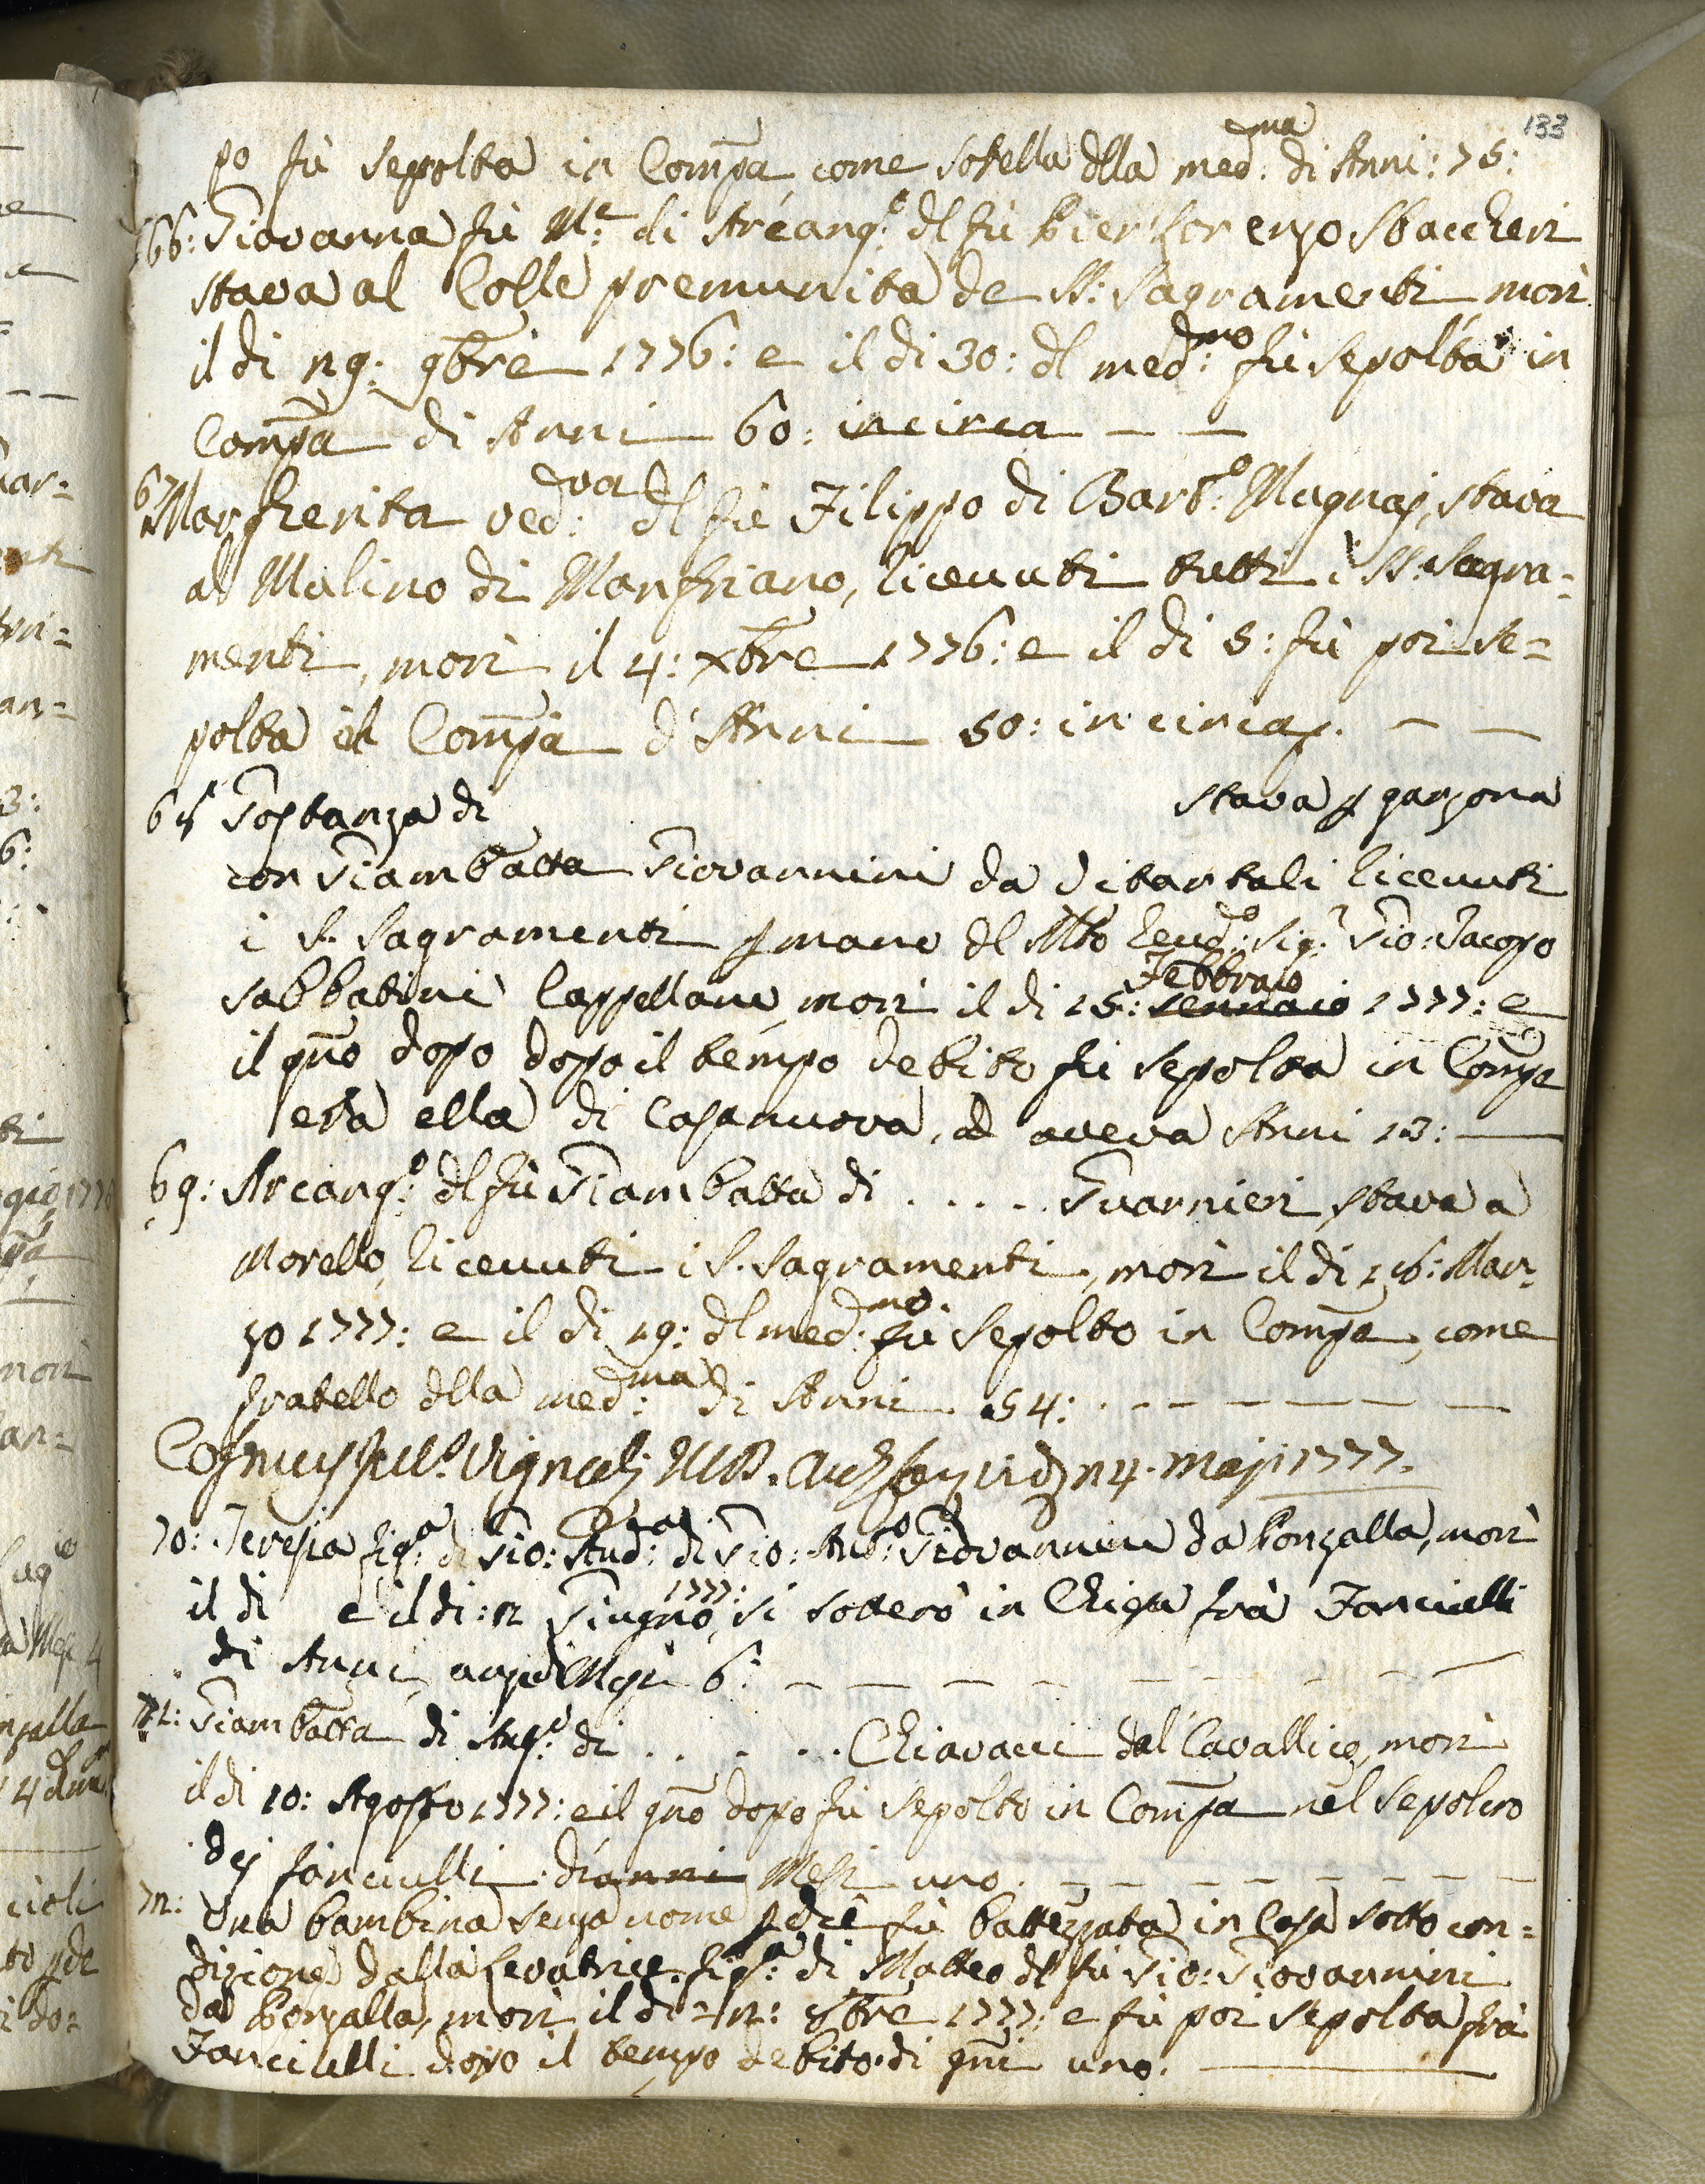 133
po fù sepolta in Compa, come sorella dlla med:ma di Anni: 75:
66: Giovanna fù M:e di Arcang:o dl fù Pier: Lorenzo Sbaccheri
stava al Colle premunita de SS: Sagramenti morì
il di 29: 9bre 1776: e il di 30: dl med:mo fù sepolta in
Compa di Anni 60: incirca
67 Margherita ved:va dl fù Filippo di Bart:o Mugnaj, stava
al Mulino di Monfriano, ricevuti tutti i SS: Sagra=
menti, morì il 4: xbre 1776: e il di 5: fù poi se=
polta in Compa d'Anni 50: in circa.
68 Gostanza di stava p garzona
con Giambatta Giovannini da Ditartali ricevuti
i S. Sagramenti p mano dl Mto Revd:o Sig:r Gio: Jacopo
Sabbatini Cappellano, morì il di 15: Gennaio Febbraio 1777: e
il gno dopo dopo il tempo debito fù sepolta in Compa
era ella di Casanuova, ed aveva Anni 13:
69: Arcang:o dl fù Giambatta di . . . . Guarnieri, stava a
Morello, ricevuti i S. Sagramenti, morì il di 18: Mar-
zo 1777: e il di 19: dl med:mo fù sepolto in Compa, come
fratello dlla med:ma di Anni 54:
24. Maji 1777.
70: Teresia fig:a di Gio: And:a di Gio: Ant:o Giovannini da Ronzalla, morì
il di e il di: 12 Giugno 1777: si sotterò in Chiesa frà Fanciulli
di Anni, anzi Mesi 6:
71: Giambatta di Ang:o di . . . . . Chiavacci dal Cavallico, morì
il di 10: Agosto 1777: e il gno dopo fù sepolto in Compa nel sepolcro
dei fanciulli di anni Mesi uno.
72: Una bambina senza nome p che fù battezzata in Casa sotto con=
dizione dalla Levatrice fig:a di Matteo dl fù Gio: Giovannini
da Ronzalla, morì il di 12: 8bre 1777: e fù poi sepolta frà
Fanciulli dopo il tempo debito di gni uno.